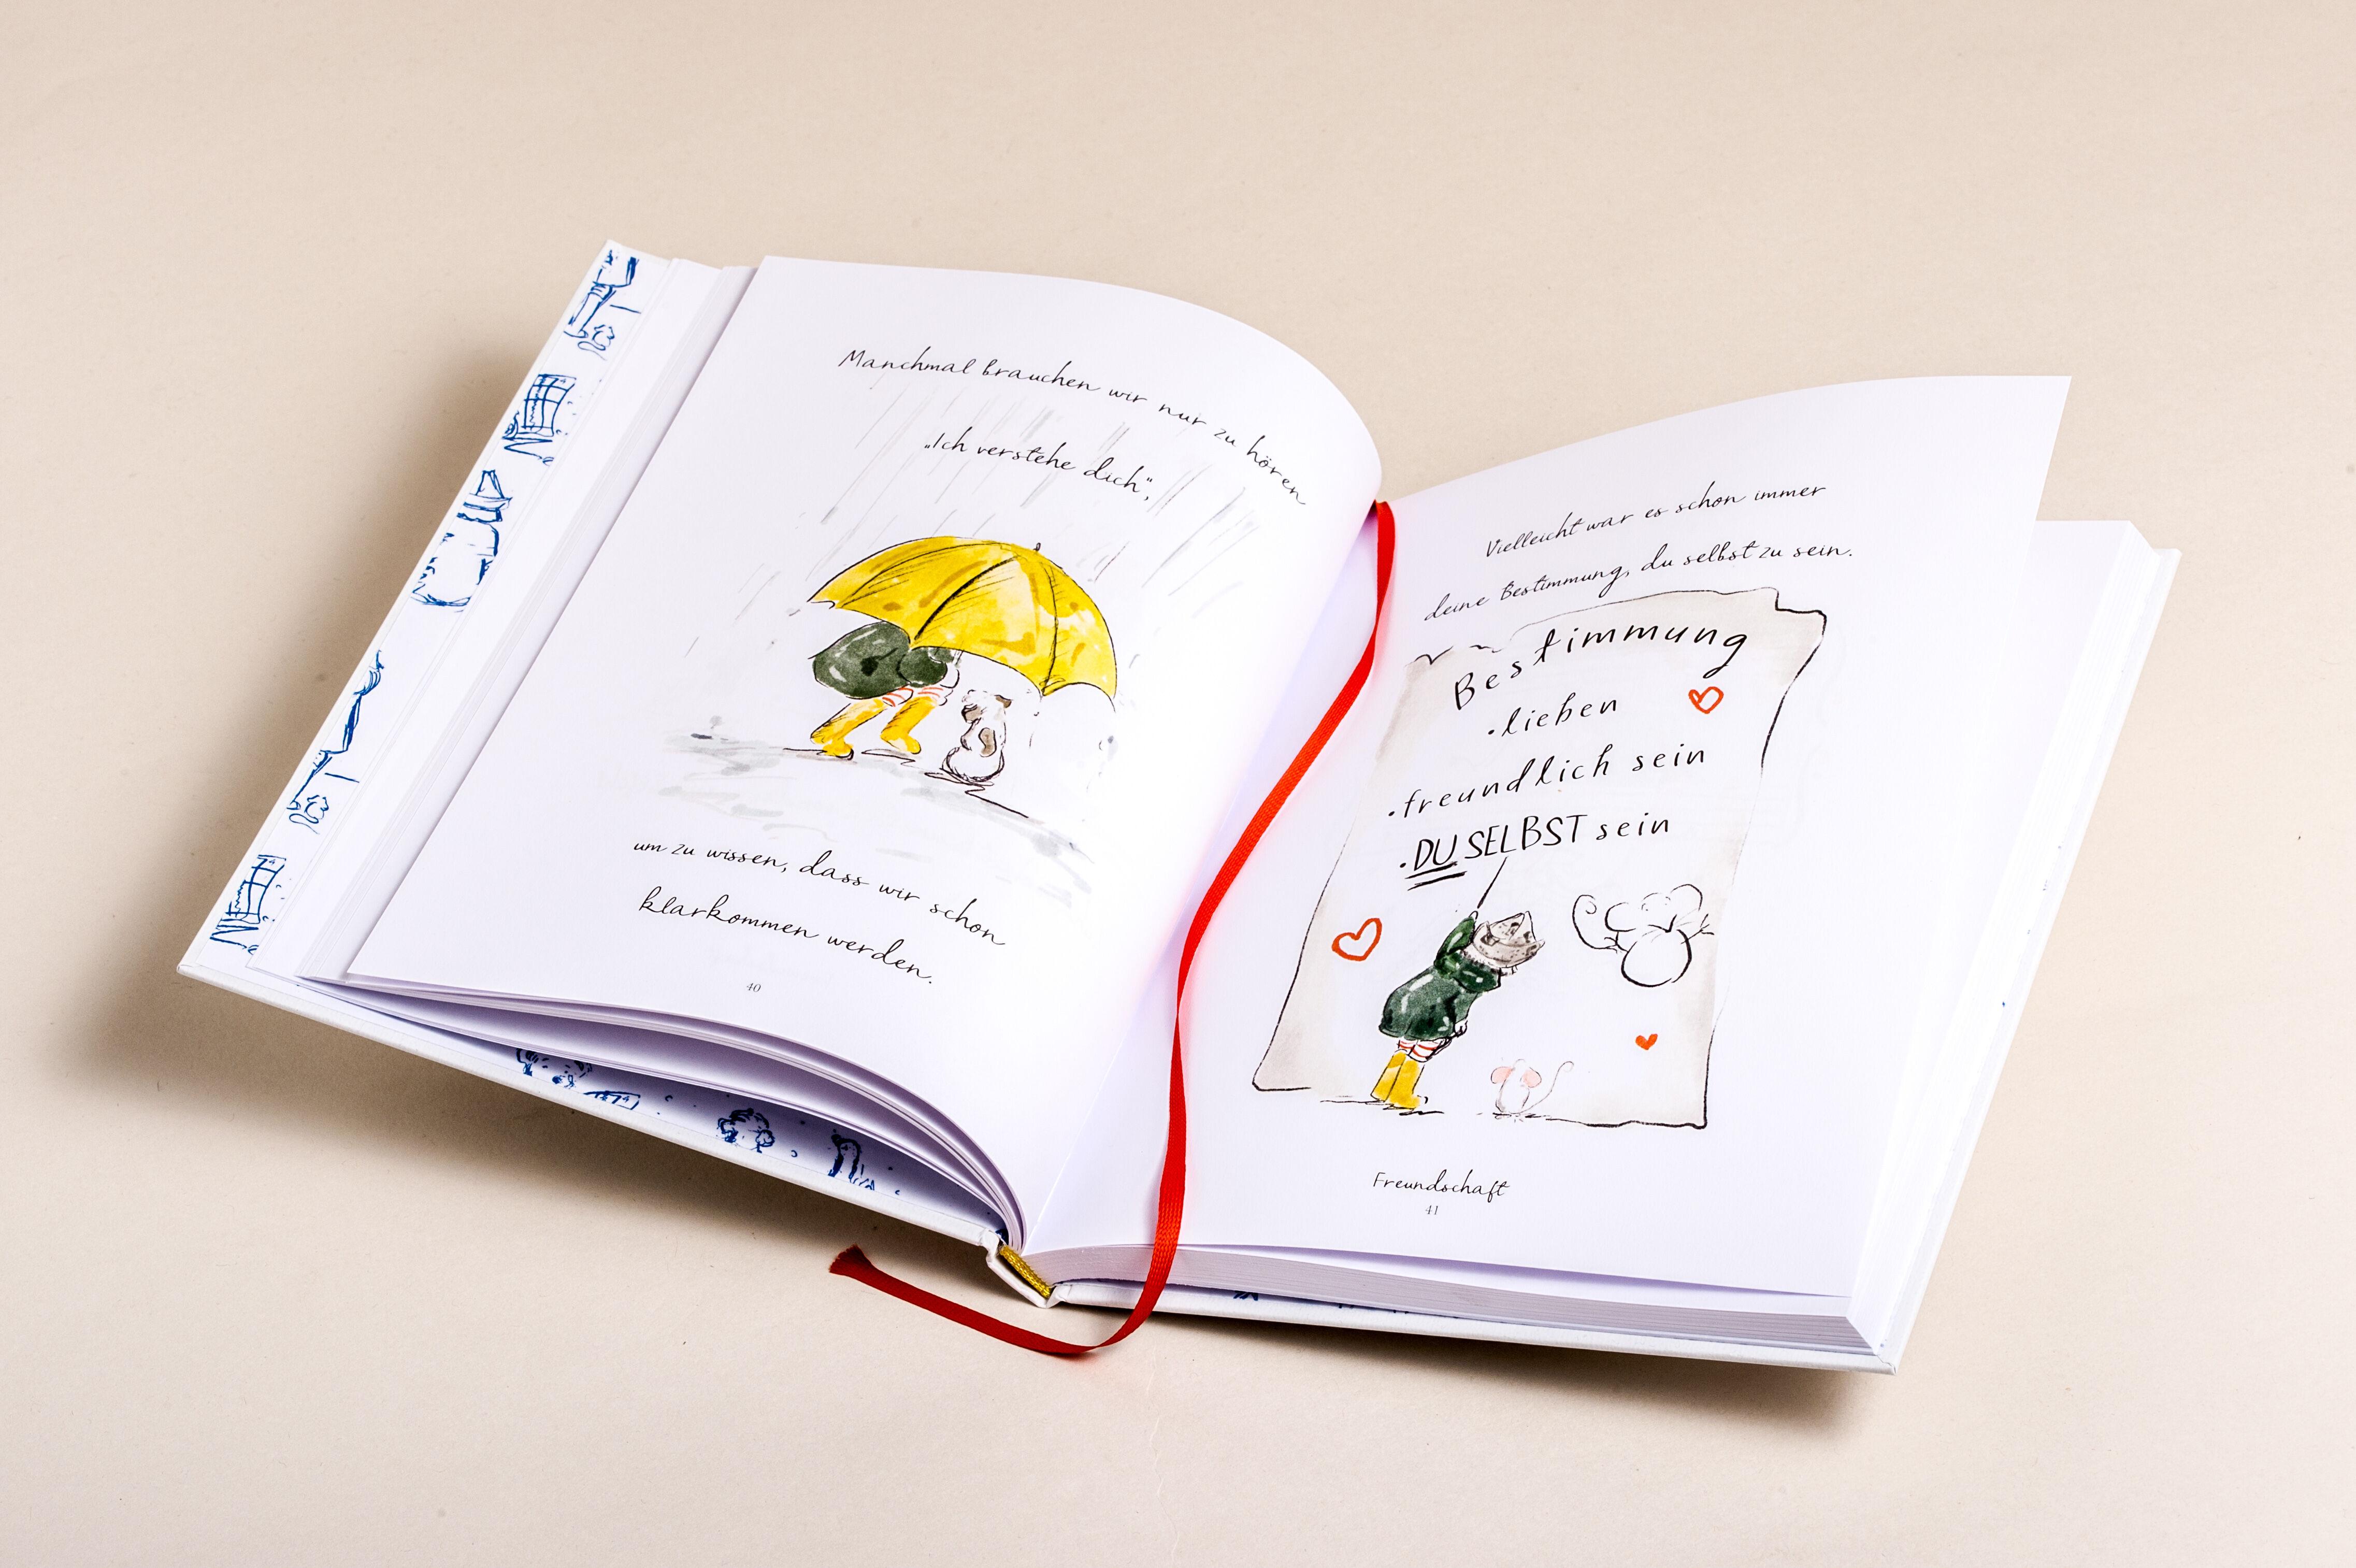 Manchmal brauchen wir nur zu hören
„Ich verstehe dich“,
um zu wissen, dass wir schon
klarkommen werden.
40
Vielleicht war es schon immer
deine Bestimmung, du selbst zu sein.
Bestimmung
.lieben
.freundlich sein
.DU SELBST sein
Freundschaft
41